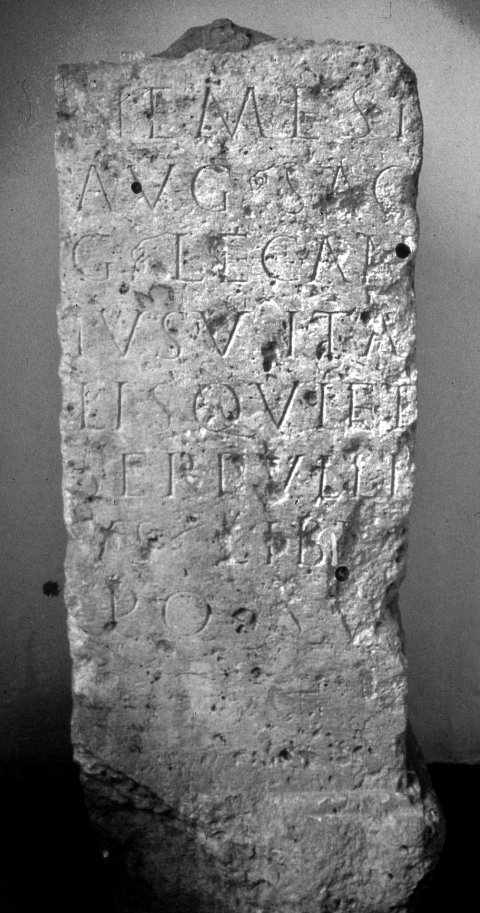 NEMESI
AVG SAC
G LECAN
IVS VITA
LIS QVI ET
VERVLLI
VS LIBII
POSV